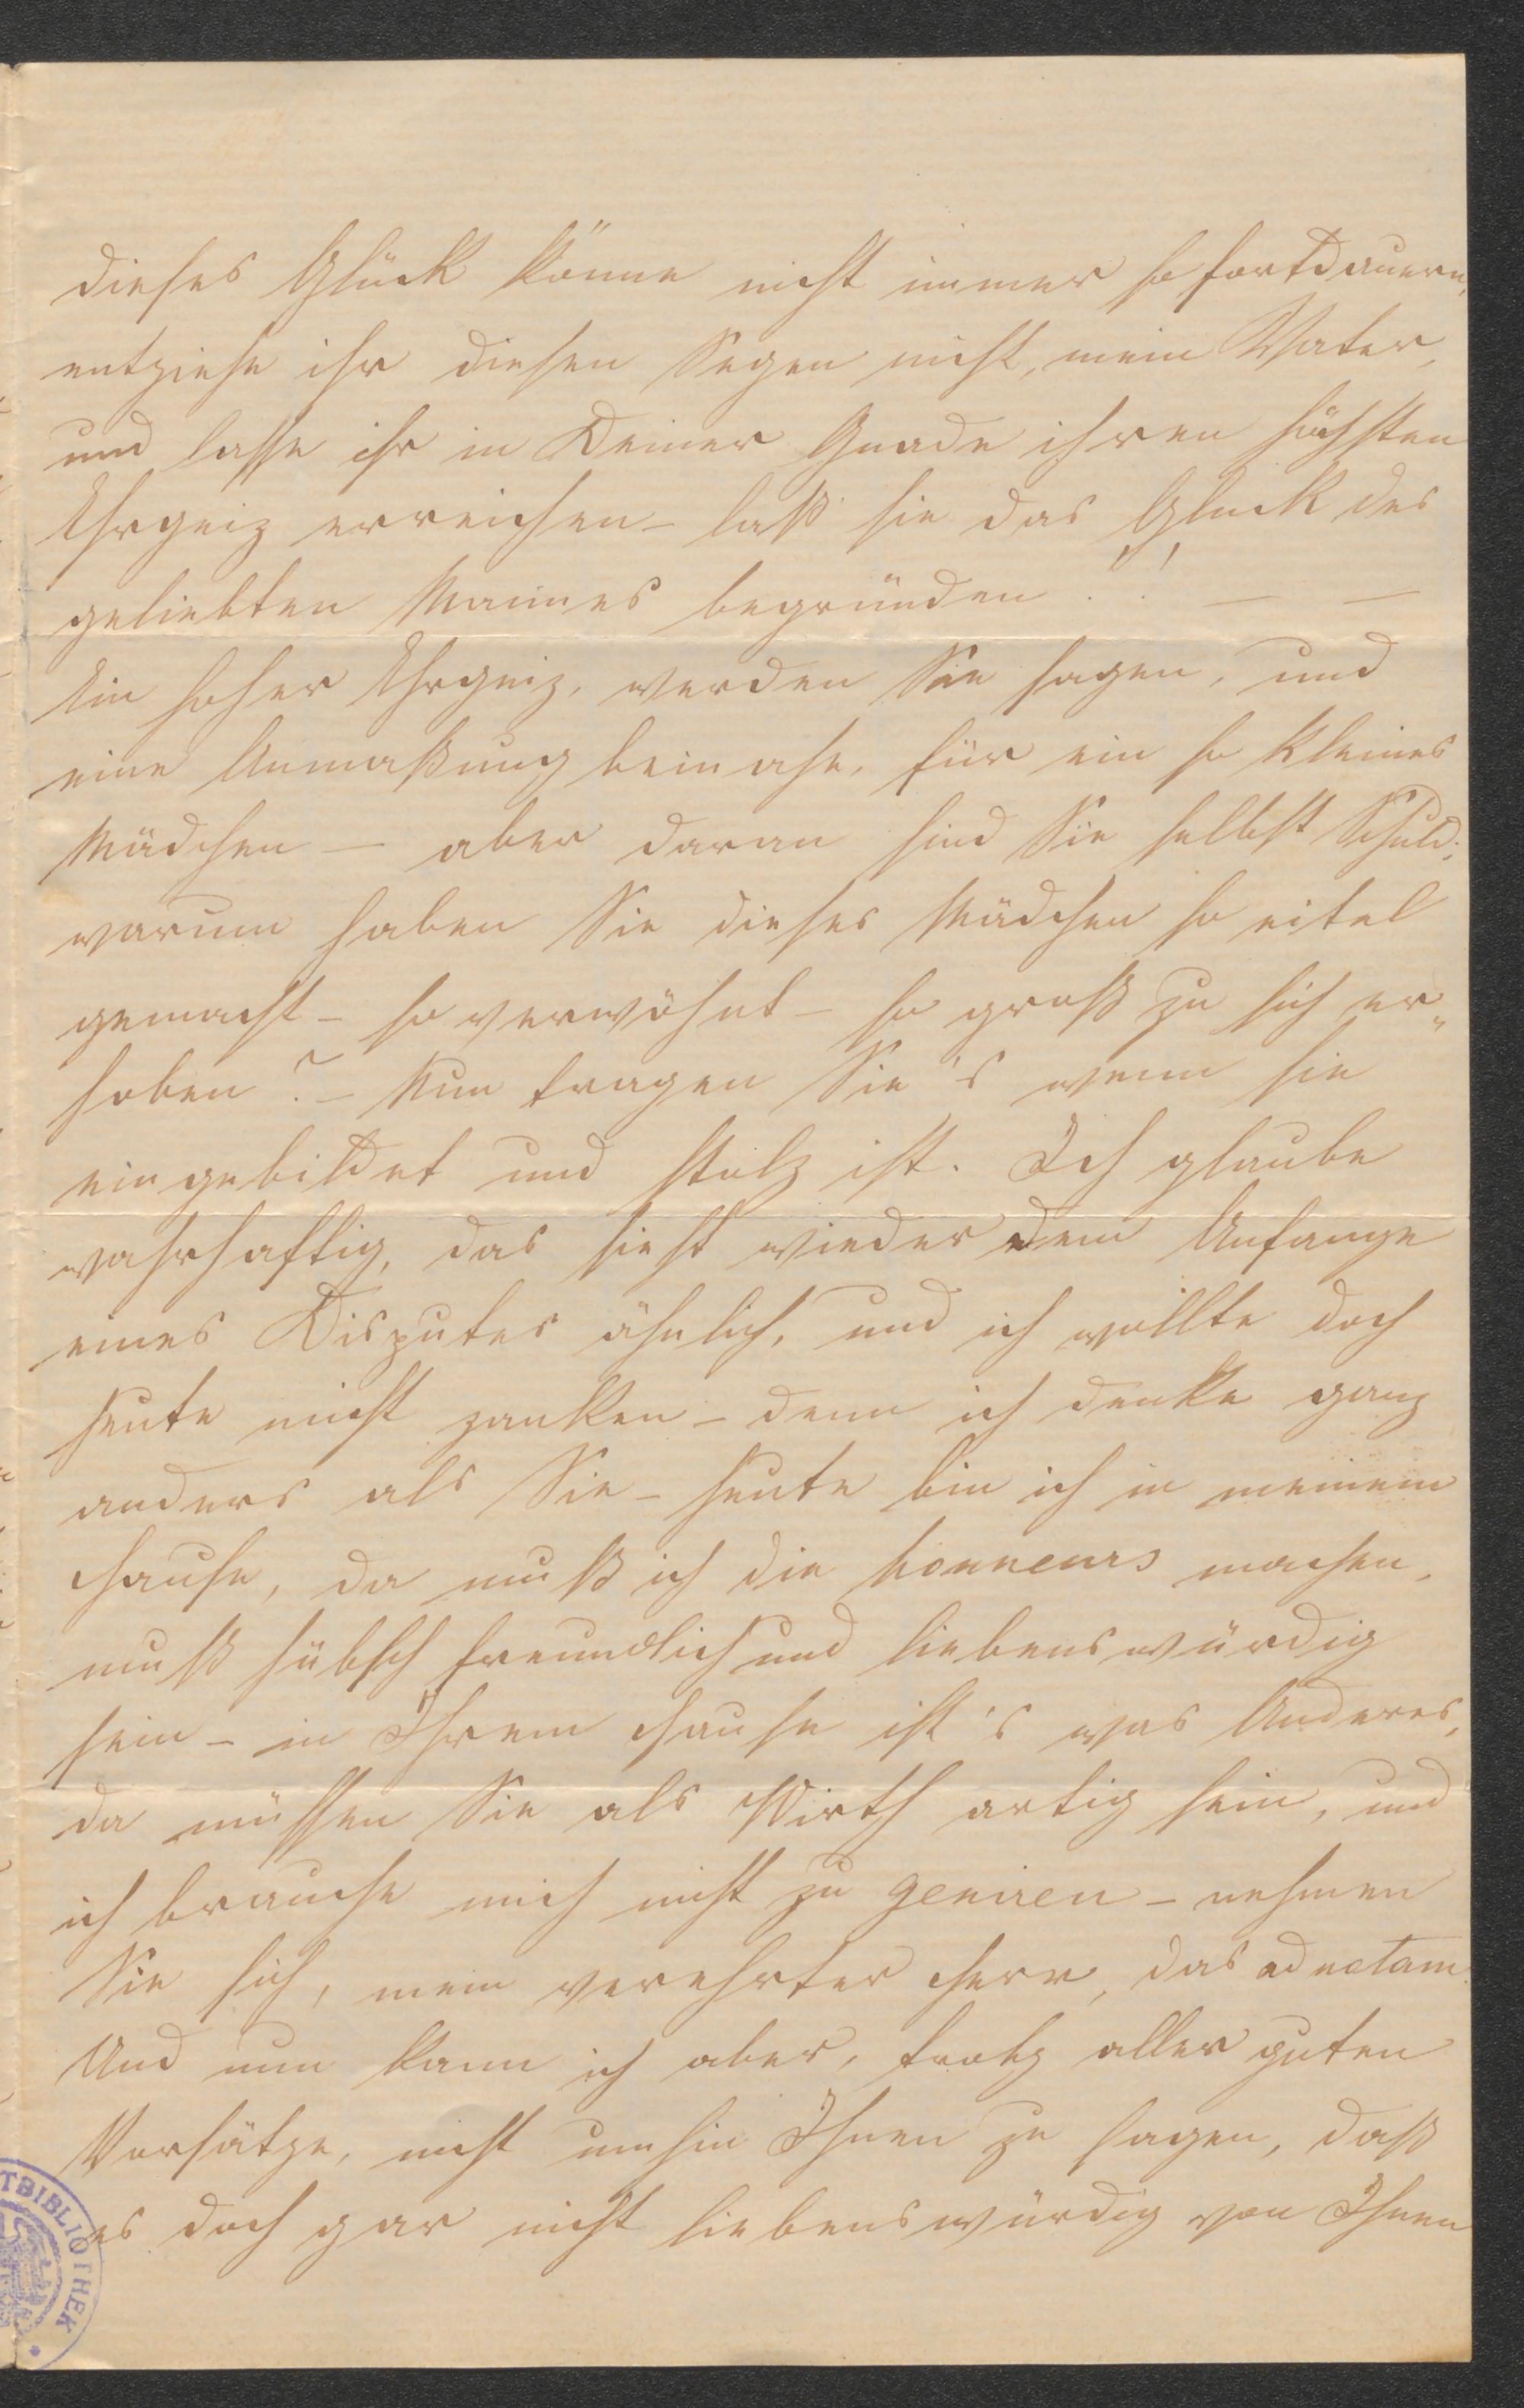 dieses Glück könne nicht immer so fortdauern,
entziehe ihr diesen Segen nicht, mein Vater,
und lasse ihr in Deiner Gnade ihren höchsten
Ehrgeiz erreichen – laß sie das Glück des
geliebten Mannes begründen!! — —
Ein hoher Ehrgeiz, werden Sie sagen, und
eine Anmaßung beinahe, für ein so kleines
Mädchen — aber daran sind Sie selbst Schuld;
warum haben Sie dieses Mädchen so eitel
gemacht – so verwöhnt – so groß zu sich er„
hoben? – Nun tragen Sie's wenn sie
eingebildet und stolz ist. Ich glaube
wahrhaftig, das sieht wieder dem Anfange
eines Disputes ähnlich, und ich wollte doch
heute nicht zanken – denn ich denke ganz
anders als Sie – heute bin ich in meinem
Hause, da muß ich die honneurs machen,
muß hübsch freundlich und liebenswürdig
sein – in Ihrem Hause ist's was Anderes,
da müssen Sie als Wirth artig sein, und
ich brauche mich nicht zu geniren – nehmen
Sie sich, mein verehrter Herr, das ad notam.
Und nun kann ich aber, trotz aller guten
Vorsätze, nicht umhin Ihnen zu sagen, daß
es doch gar nicht liebenswürdig von Ihnen
TBIBLIOTHEK